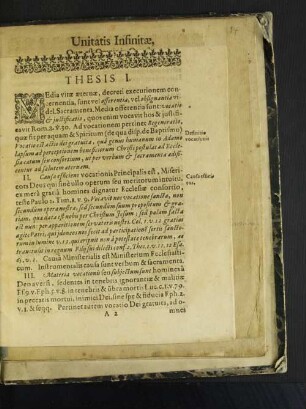 Unitatis Infinitæ,
THESIS I.
MEdia vitæ æternæ, decreti executionem con-
cernentia, sunt vel offerentia, vel obsignantia ut
Sacramenta. Media offerentia sunt: vocatio
& justificatio, quos enim vocavit hos & justifi-
cavit Rom. 8. v. 30. Ad vocationem pertinet Regeneratio,
quæ fit per aquam & Spiritum (ite qua disp. de Baptismo)
Vocatio est actio dei gratuita, quâ genus humanum in Adamo
lapsum ad perceptionem beneficiorum Christi postulat ad Eccle-
siæ suæ consortium, ut per verbum & sacramenta
contur ad salutem æternam.
Definitio
vocationis
II. Causa efficiens vocationis Principalis est, Miseri-
cors Deus qui sine ullo operum seu meritorum intuitu
ex merâ gratiâ homines dignatur Ecclesiæ consortio,
teste Paulo 2. Tim. 1. v. 9. Vocavit nos vocatione sanctâ, non
secundum opera nostra, sed secundum suum propositum & gra-
tiam, quæ data est nobis per Christum Jesum; sed palam facta
est nunc per apparitionem servatoris nostri. Col. 1. v. 12 gratias
agite Patri, qui idoneos nos fecit ad participationem sortis sancto-
rum in lumine v. 13. qui eripuit nos à potestate tenebrarum, at-
que transtulit in regnum Filii sui dilecti conf. 2. Thes. 1. v. 11. 12 Esa.
6. v. 1. Causa Ministerialis est Ministerium Ecclesiasti-
cum. Instrumentalis causa sunt verbum & sacramenta.
III. Materia vocationis seu subjectum sunt homines à
Deo aversi, sedentes in tenebris ignorantiæ & malitiæ
Eph. v. 8. in tenebris & umbra mortis Luc. c. 1. v. 79.
in peccatis mortui, inimici Dei, sine spe & fiducia Eph. 2.
v. 1. & seqq. Pertinet autem vocatio Dei gratuita, ad o-
A 2
mnes